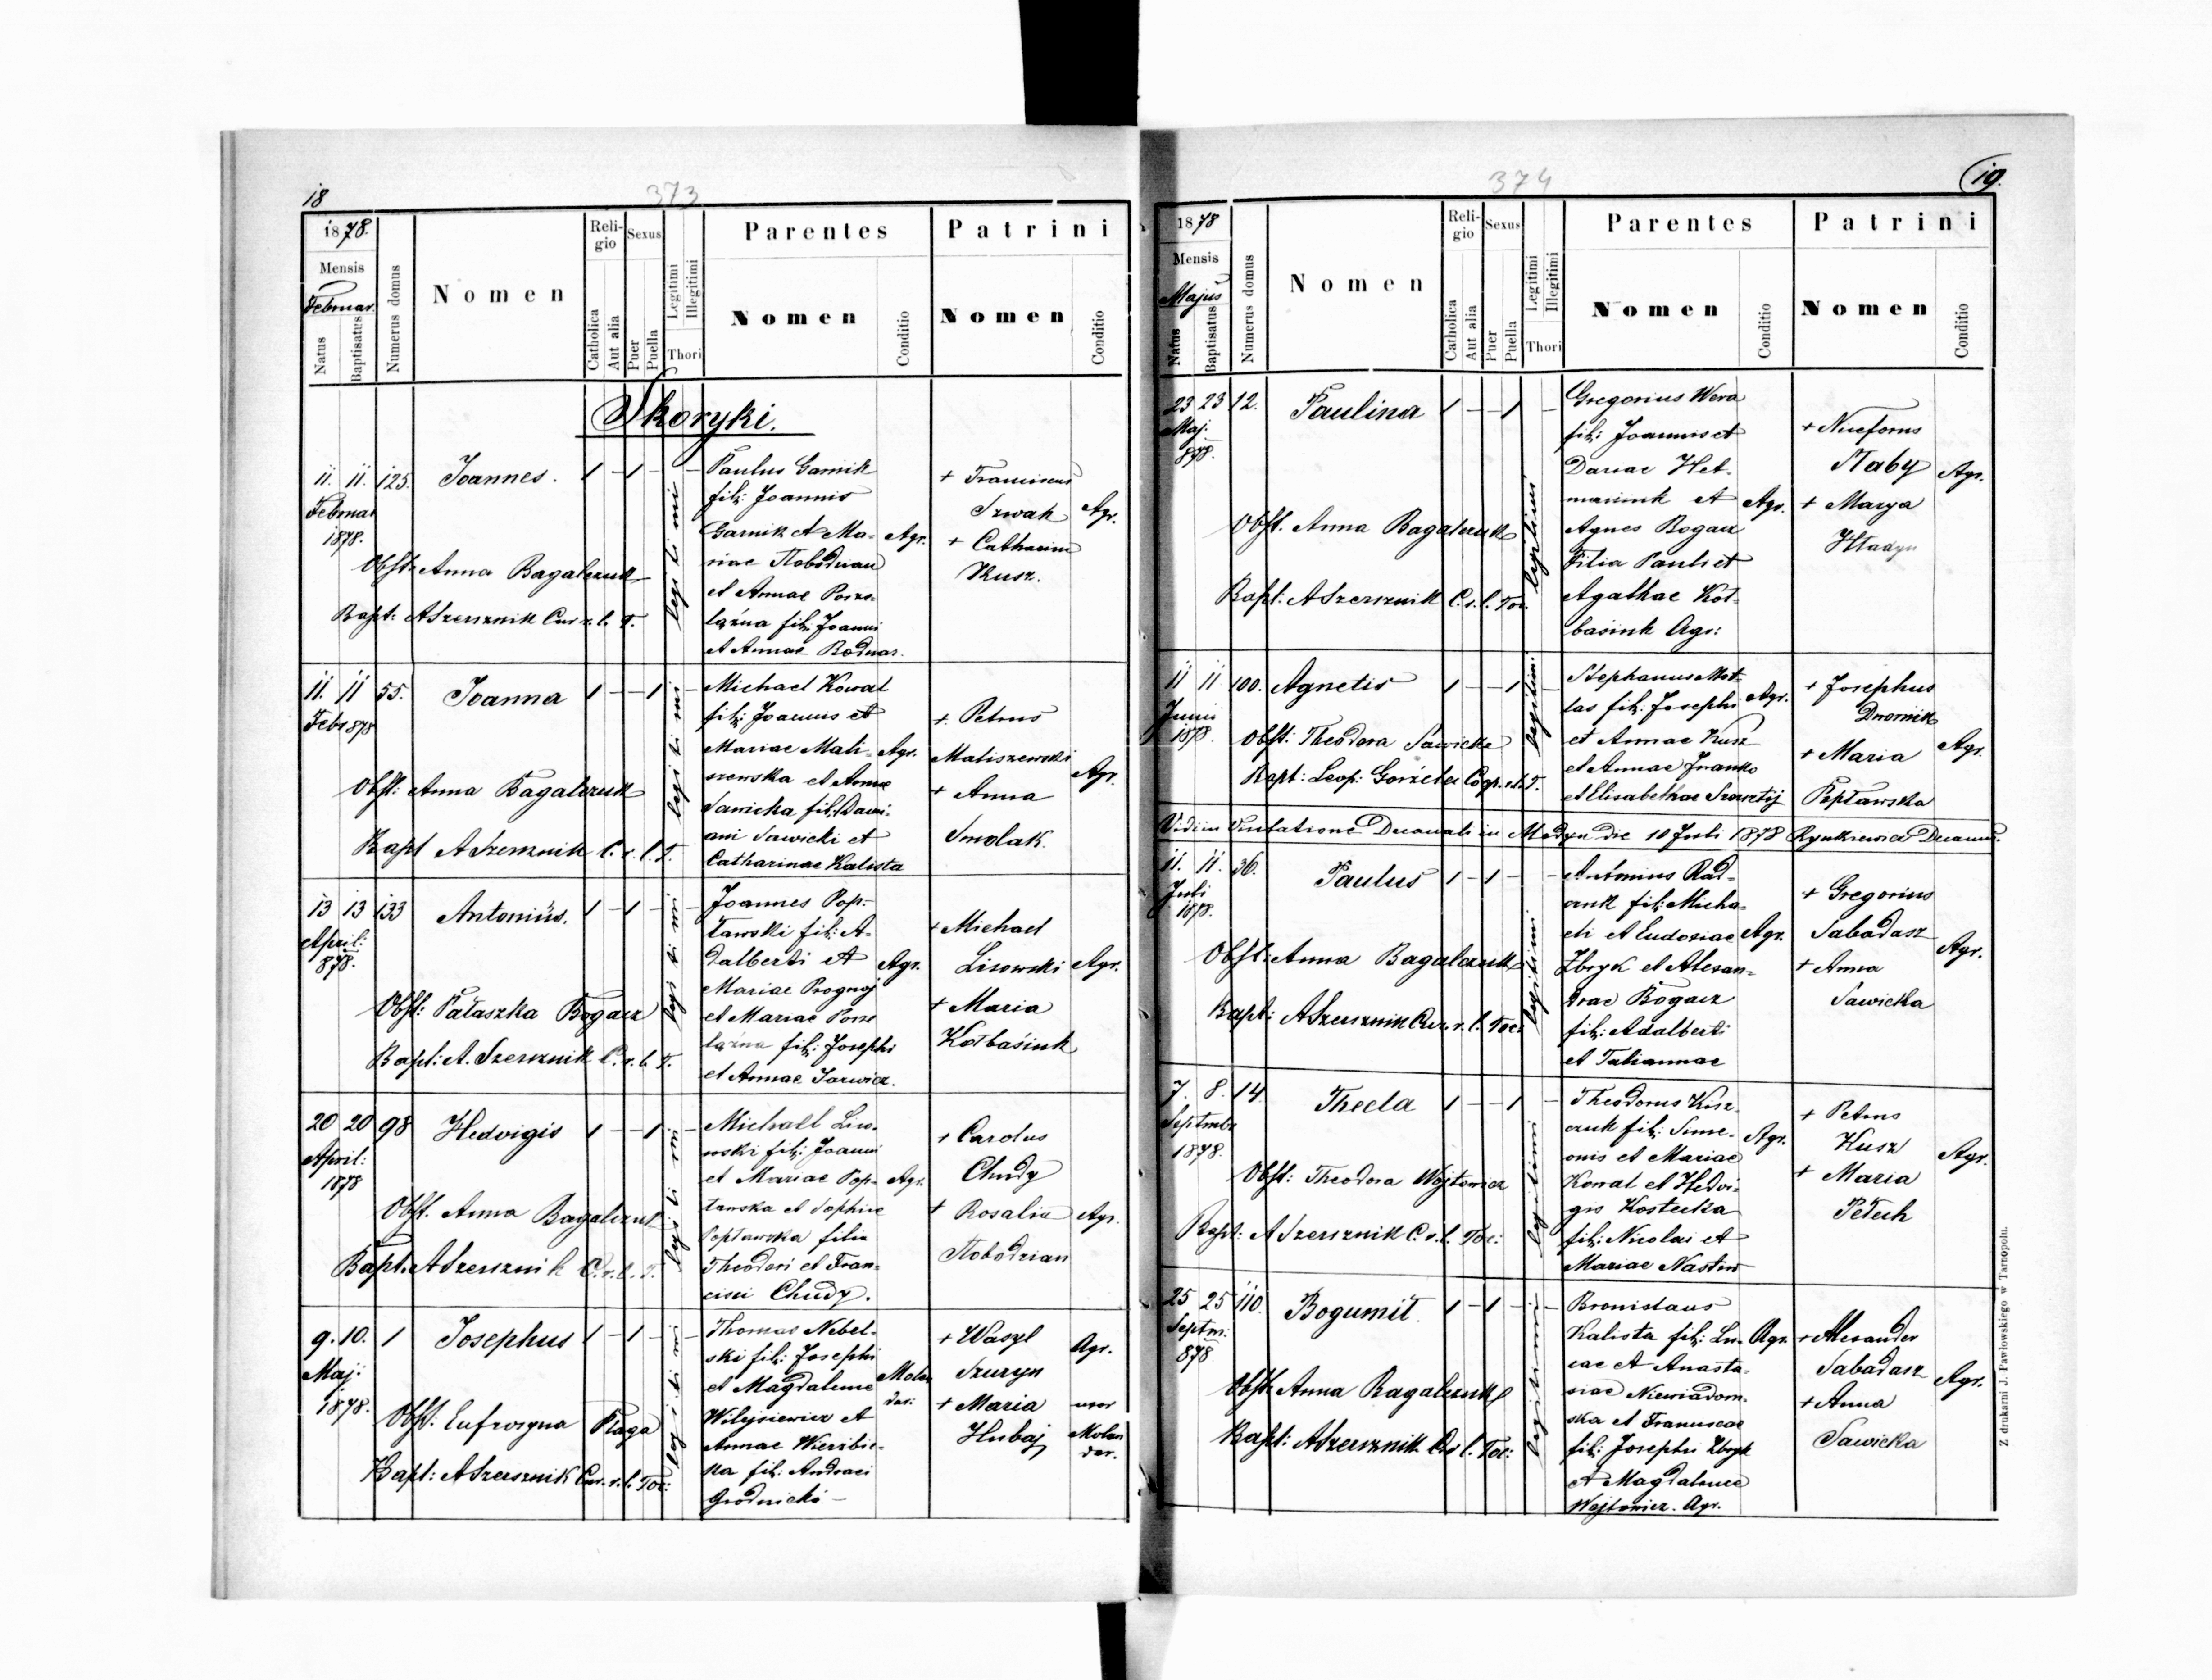 18
373
1878.
Mensis
Februar.
Natus
Baptisatus
Numerus domus
Nomen
Religio
Catholica
Aut alia
Sexus
Puer
Puella
Legitimi
Illegitimi
Thori
Parentes
Nomen
Conditio
Patrini
Nomen
Conditio
Skoryki.
11. 11. 125. Joannes. 1 - 1 -
Februar
1878.
Obst: Anna Bagalczuk
Bapt: A Szersznik Cur. r. l. T.
legitimi
Paulus Garnik
fil: Joannis
Garnik et Ma-
riae
et Annae Porze-
lązna fil: Joanni
et Annae Bodnar.
Agr.
+ Franciscus
Szwak
+ Catharina
Kusz.
Agr.
11. 11 55. Joanna 1 - - 1 -
Febr 878
Obst: Anna Bagalczuk
Bapt A Szersznik C. r. l. T.
legitimi
Michael Kowal
fil: Joannis et
Mariae Mali-
szewska et Annae
Sawicka fil: Dami-
ani Sawicki et
Catharinae Kalista
Agr.
+ Petrus
Maliszewski
+ Anna
Smolak.
Agr.
13 13 133 Antonius. 1 - 1 -
April:
878.
Obst: Pałaszka Bogacz
Bapt: A. Szersznik C. r. l. T.
legitimi
Joannes Pop-
ławski fil: A-
dalberti et
Mariae Prognoj
et Mariae Porze
lązna fil: Josephi
et Annae Jarwicz.
Agr.
+ Michael
Lisowski
+ Maria
Kołbaśiuk
Agr.
20 20 98 Hedvigis 1 - - 1 -
April:
1878
Obst. Anna Bagalczuk
Bapt. A Szersznik C. r. l. T.
legitimi
Michael Liso-
wski fil: Joanni
et Mariae Pop-
ławska et Sophiae
Popławska filia
Theodori et Fran-
cisci Chudy.
Agr.
+ Carolus
Chudy
+ Rosalia
Agr.
9. 10. 1 Josephus 1 - 1 -
Maj:
1878.
Obst: Eufrosyna Płaga
Bapt: A Szersznik Cur. r. l. Toc:
legitimi
Thomas Nebel-
ski fil: Josephi
et Magdalenae
Wilysiewicz et
Annae Wierzbic-
ka fil: Andraei
Grodnicki -
Molen
dar:
+ Wasyl
Szuryn
+ Maria
Hubaj
Agr.
uxor
Molen
dar.
374
19.
1878
Mensis
Majus
Natus
Baptisatus
Numerus domus
Nomen
Religio
Catholica
Aut alia
Sexus
Puer
Puella
Legitimi
Illegitimi
Thori
Parentes
Nomen
Conditio
Patrini
Nomen
Conditio
23 23 12. Paulina 1 - - 1 -
Maj.
878.
Obst. Anna Bagalczuk
Bapt: A Szersznik C. r. l. Toc.
legitimi
Gregorius Wera
fil: Joannis et
Dariae Het-
maniuk et
Agnes Bogacz
Filia Pauli et
Agathae Koł-
basiuk Agr:
Agr.
+ Niceforus
Słaby
+ Marya
Hładyn
Agr.
11 11 100. Agnetis 1 - - 1 -
Junii
1878.
Obst: Theodora Sawicka
Bapt: Leop: Gorzela Coop. r. l. T.
legitimi
Stephanus Mot-
las fil: Josephi
et Annae Kusz
et Annae Iwanko
et Elisabethae
Agr.
+ Josephus
Dwornik
+ Maria
Popławska
Agr.
Vidi in Visitatione Decanali in Medyn die 10 Juli 1878 Rynkiewicz Decanus.
11. 11. 36. Paulus 1 - 1 -
Juli
1878.
Obst: Anna Bagalczuk
Bapt: A Szersznik Cur. r. l. Toc:
legitimi
Antonius Rad-
czuk fil: Micha-
eli et Eudoxiae
Zbryk et Alexan-
drae Bogacz
fil: Adalberti
et Tatiannae
Agr.
+ Gregorius
Sabadasz
+ Anna
Sawicka
Agr.
7. 8. 14. Thecla 1 - - 1 -
Septmbr
1878.
Obst: Theodora Wojtowicz
Bapt: A Szersznik C. r. l. Toc:
legitimi
Theodorus Kisz-
czuk fil: Sime-
onis et Mariae
Kowal et Hedvi-
gis Kostecka
fil: Nicolai et
Mariae
Agr.
+ Petrus
Kusz
+ Maria
Petech
Agr.
25 25 110. Bogumił. 1 - 1 -
Septm:
878
Obst: Anna Bagalczuk
Bapt: A Szersznik C. r. l. Toc:
legitimi
Bronislaus
Kalista fil: Lu-
cae et Anasta-
siae Niewiadom-
ska et Franciscae
fil: Josephi Zbryk
et Magdalenae
Wojtowicz. Agr.
Agr.
+ Alexander
Sabadasz
+ Anna
Sawicka
Agr.
Z drukarni J. Pawłowskiego w Tarnopolu.